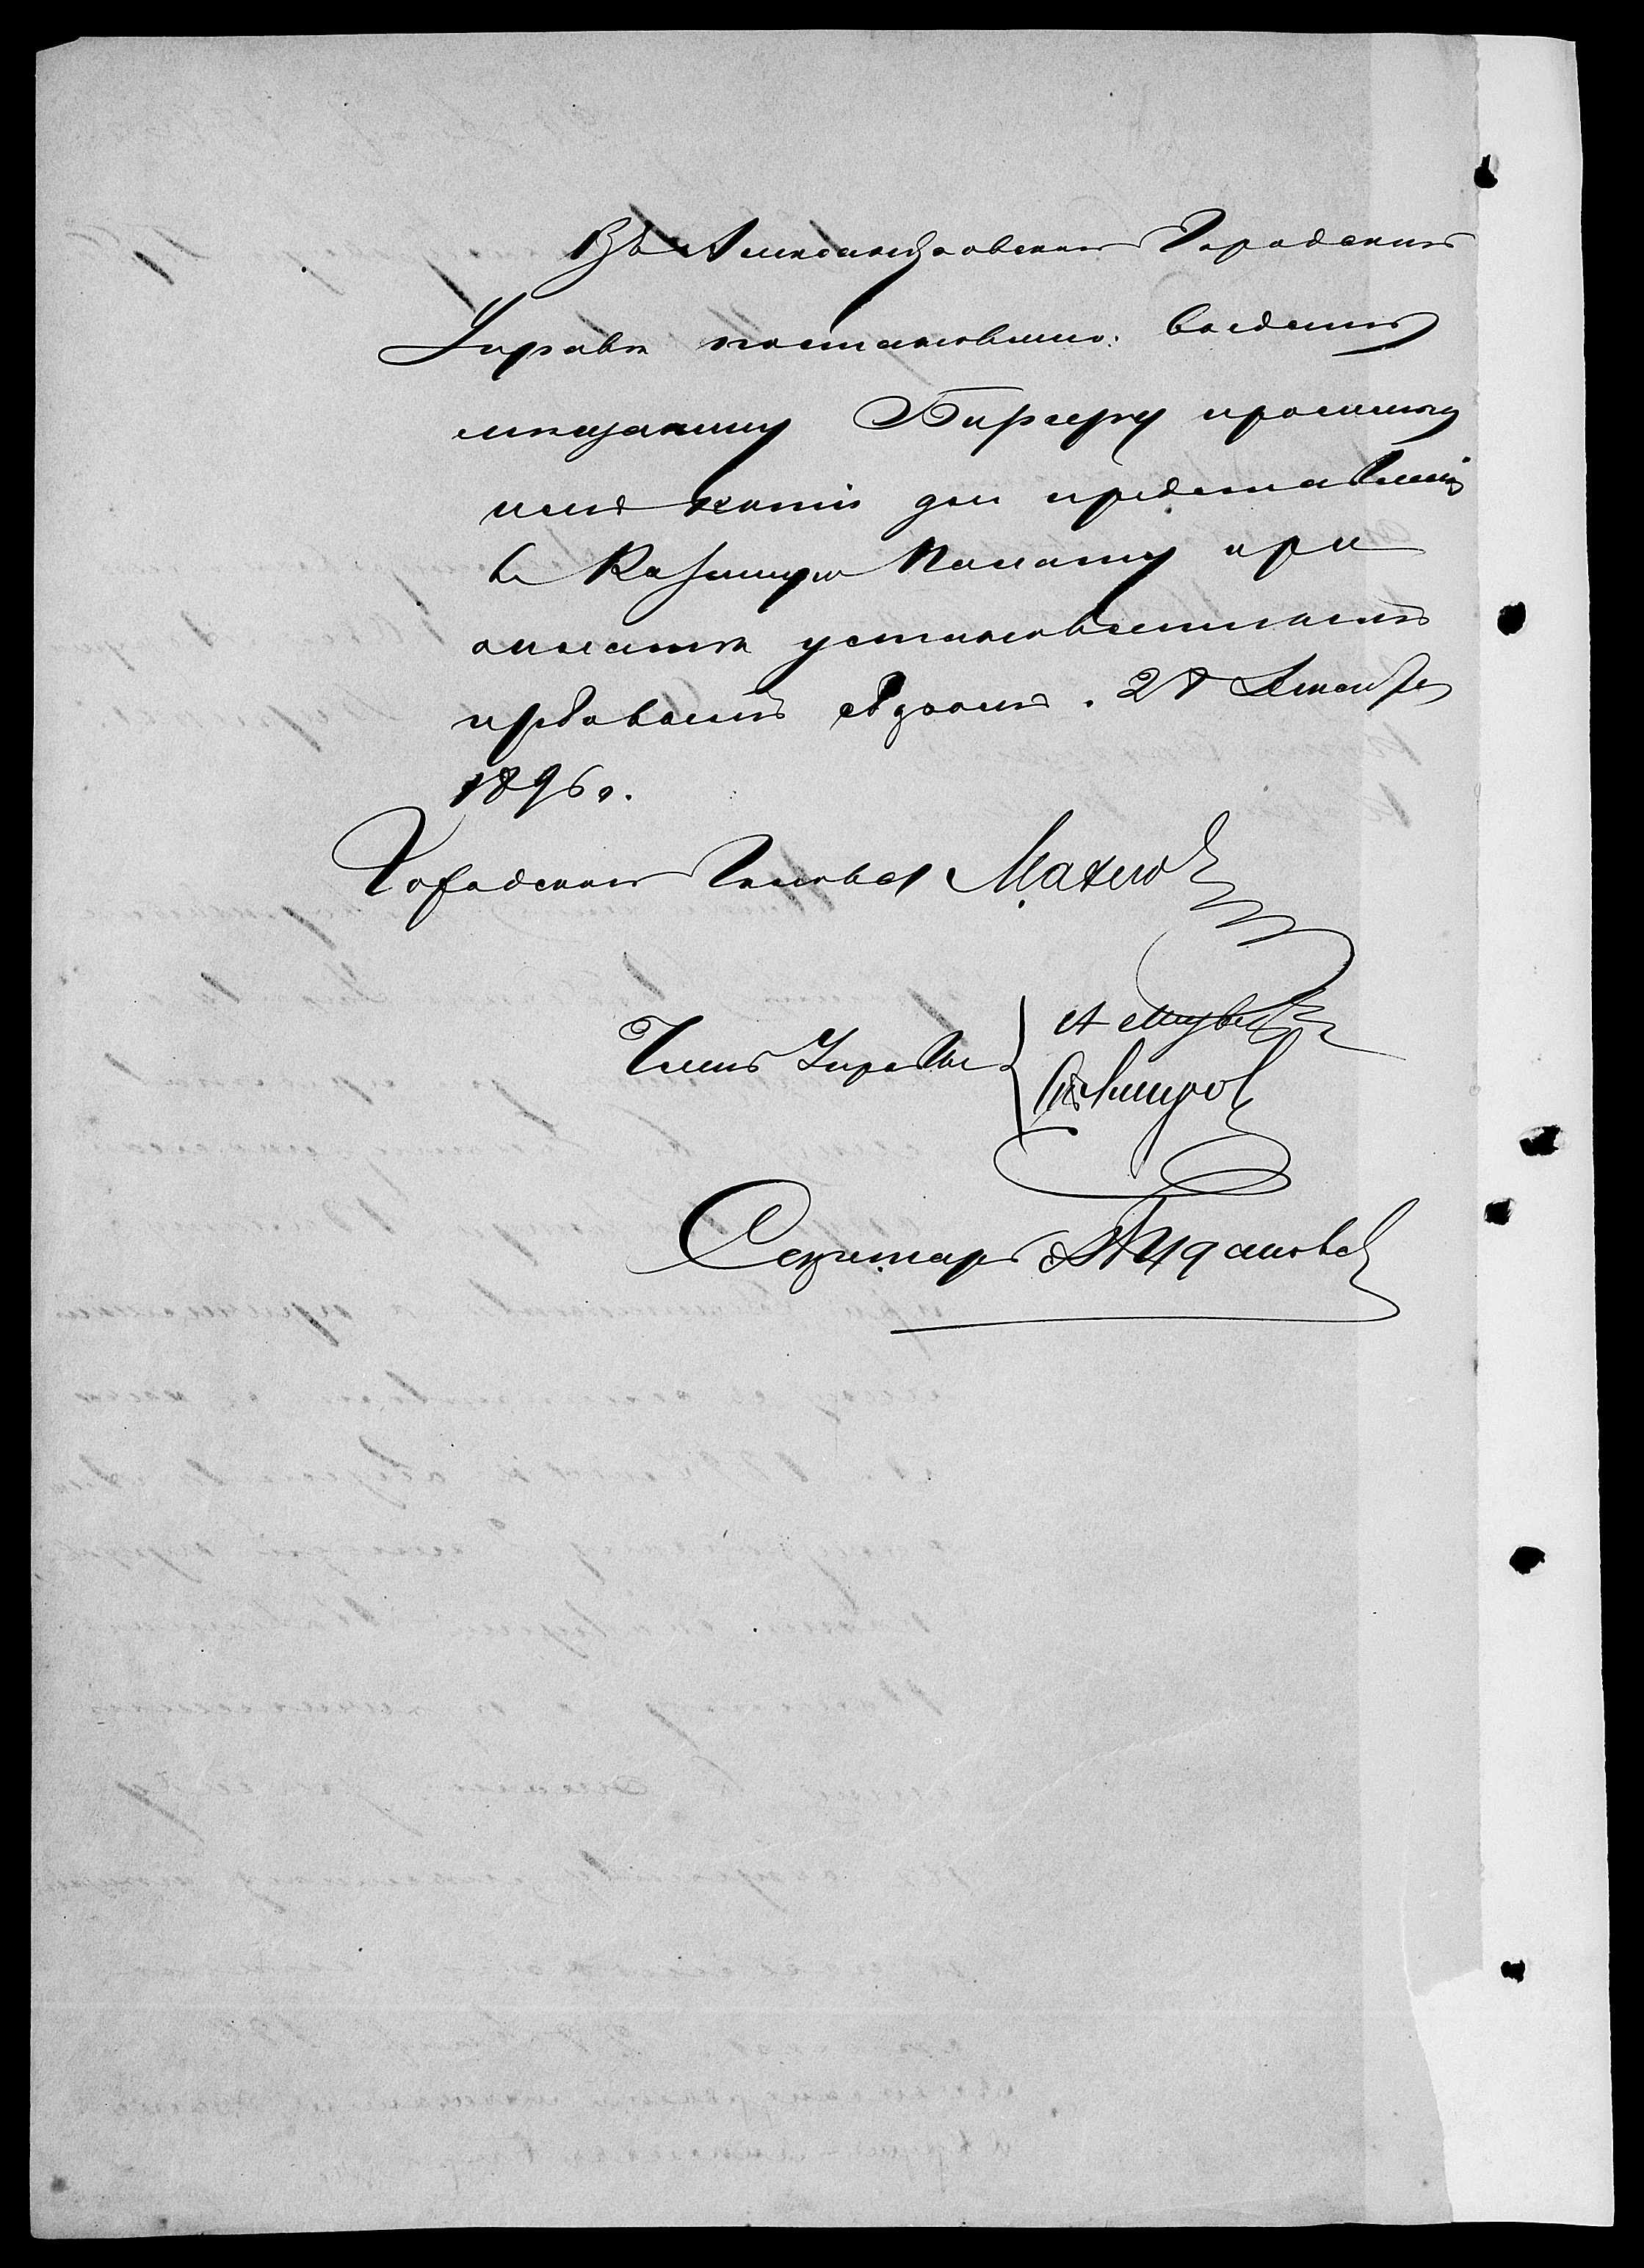 Въ Александровской Городской
Управѣ постановлено: выдать
мѣщанину Биргеру просимыя
имъ копіи для представленія
въ Казенную Палату при
оплатѣ установленнымъ
гербовымъ сборомъ. 28 Декабря
1896 г.
Городской Голова Махно
Члены Управы
Секретарь